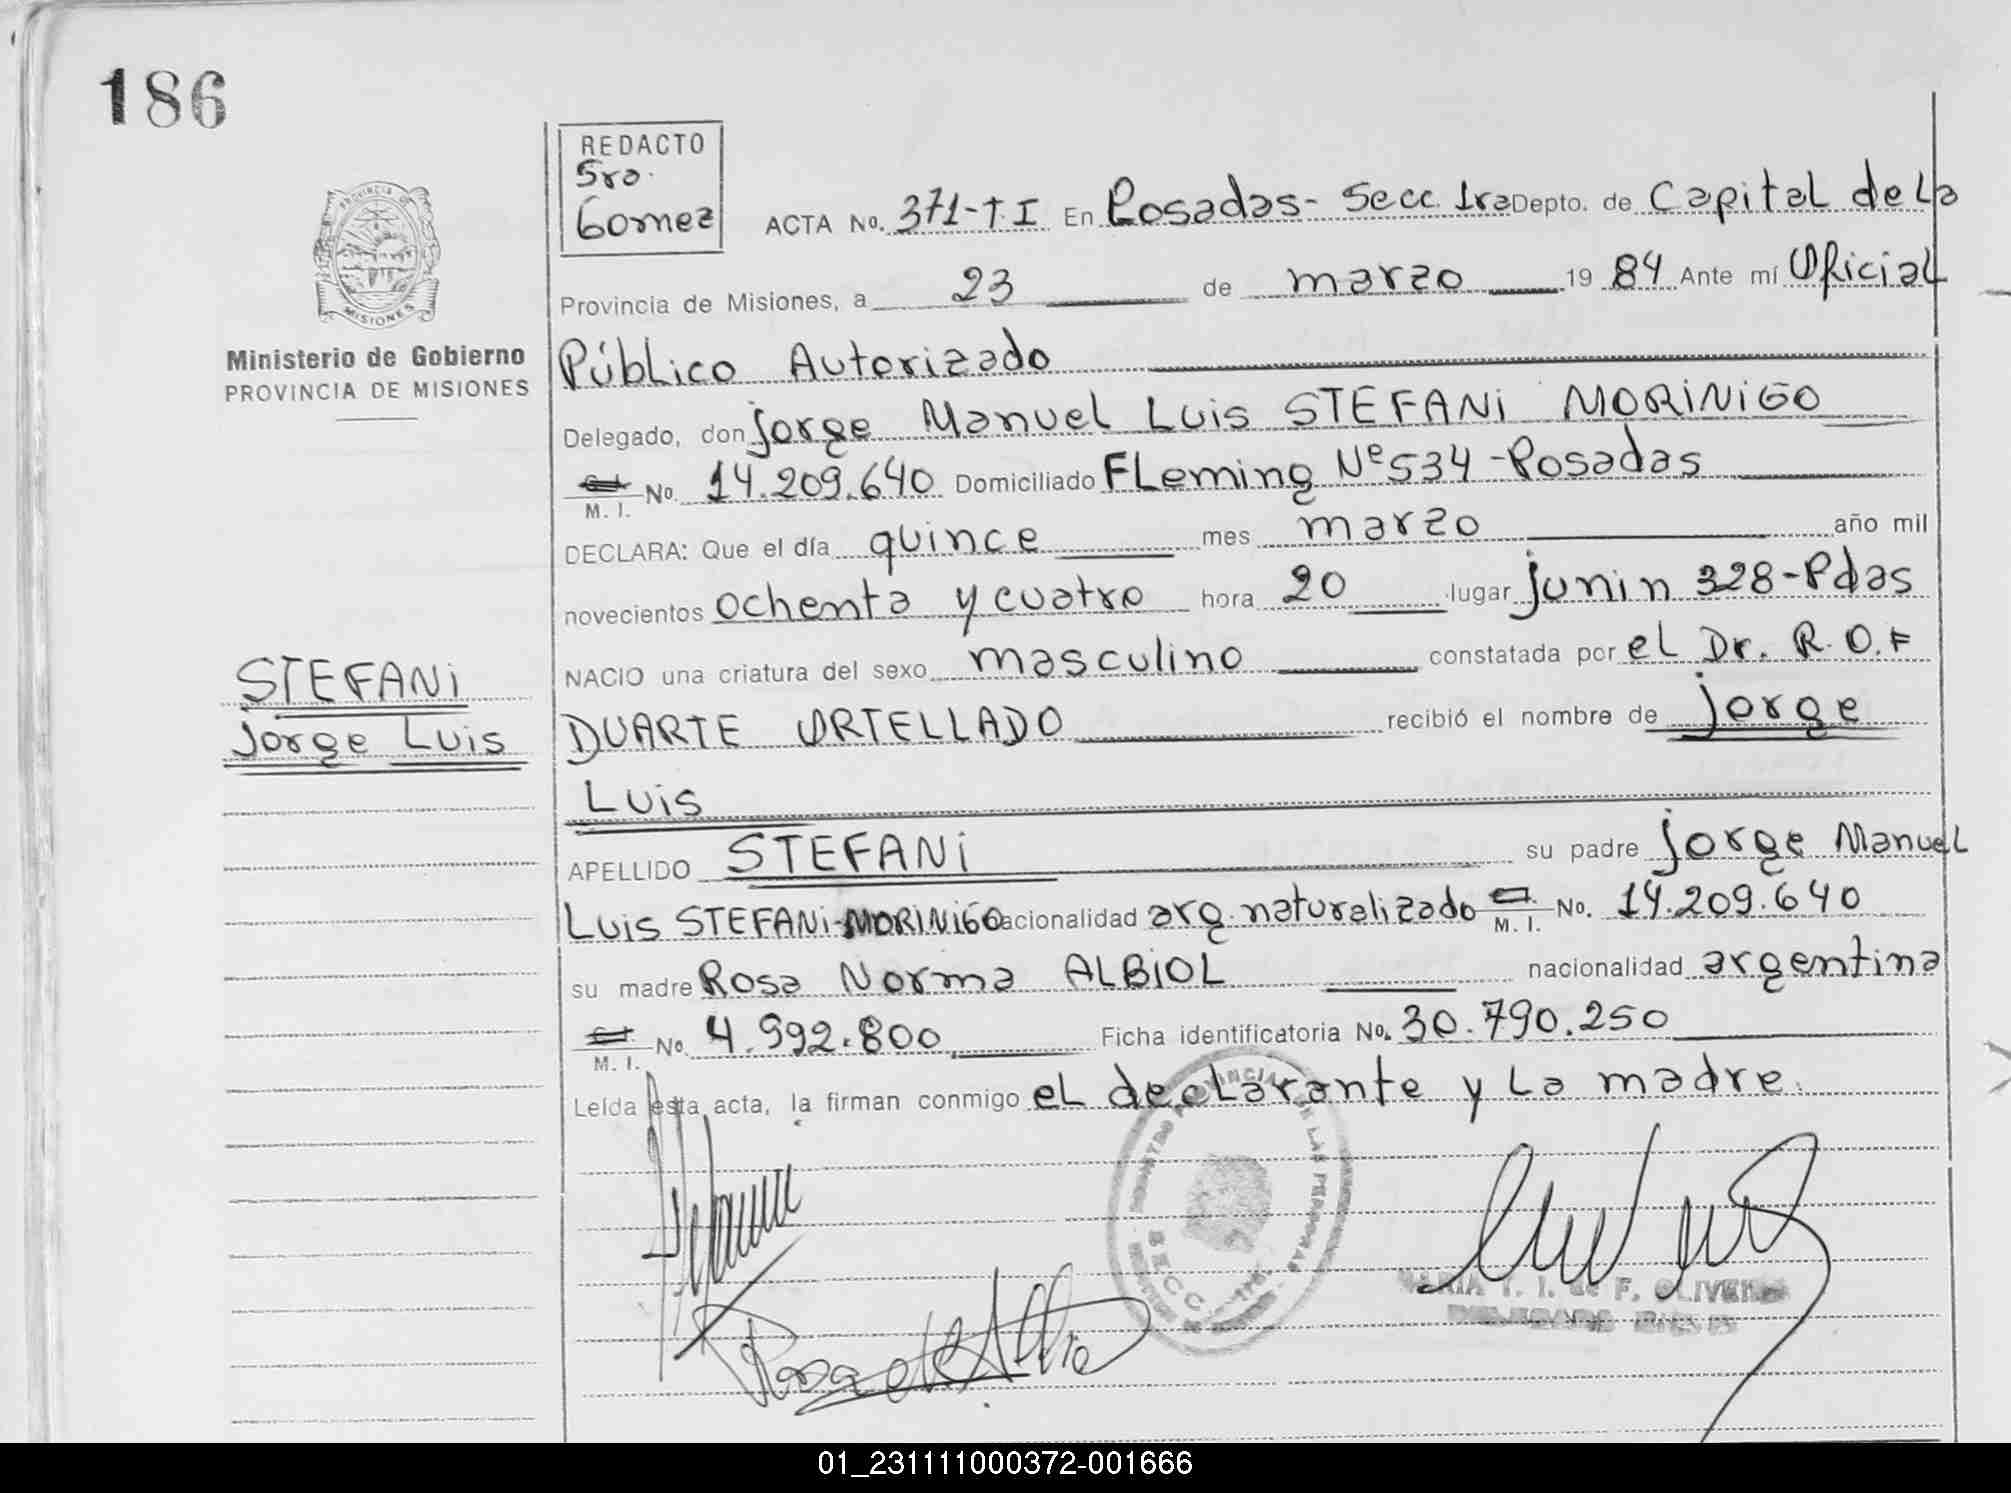 186
REDACTO
Sra.
Gomez
ACTA No. 371-T.I En Posadas- Secc. 1ra Depto. de Capital de La
Provincia de Misiones, a 23 de marzo 1984 Ante mí Oficial
PROVINCIA
MISIONES
Ministerio de Gobierno
PROVINCIA DE MISIONES
Público Autorizado
Delegado, don Jorge Manuel Luis STEFANI MORINIGO
M. I. No. 14.209.640 Domiciliado FLeming Nº 534 - Posadas
DECLARA: Que el día quince mes marzo año mil
novecientos ochenta y cuatro hora 20 lugar Junin 328-Pdas
NACIO una criatura del sexo masculino constatada por el Dr. R.O.F
STEFANI
Jorge Luis
DUARTE ORTELLADO recibió el nombre de Jorge
Luis
APELLIDO STEFANI su padre Jorge Manuel
Luis STEFANI-MORINIGO nacionalidad arg. naturalizado M. I. No. 14.209.640
su madre Rosa Norma ALBIOL nacionalidad argentina
M. I. No. 4.992.800 Ficha identificatoria No. 30.790.250
Leída esta acta, la firman conmigo el declarante y La madre.
DE LAS PERSONAS
SECC.
F. OLIVEIRA
01_231111000372-001666